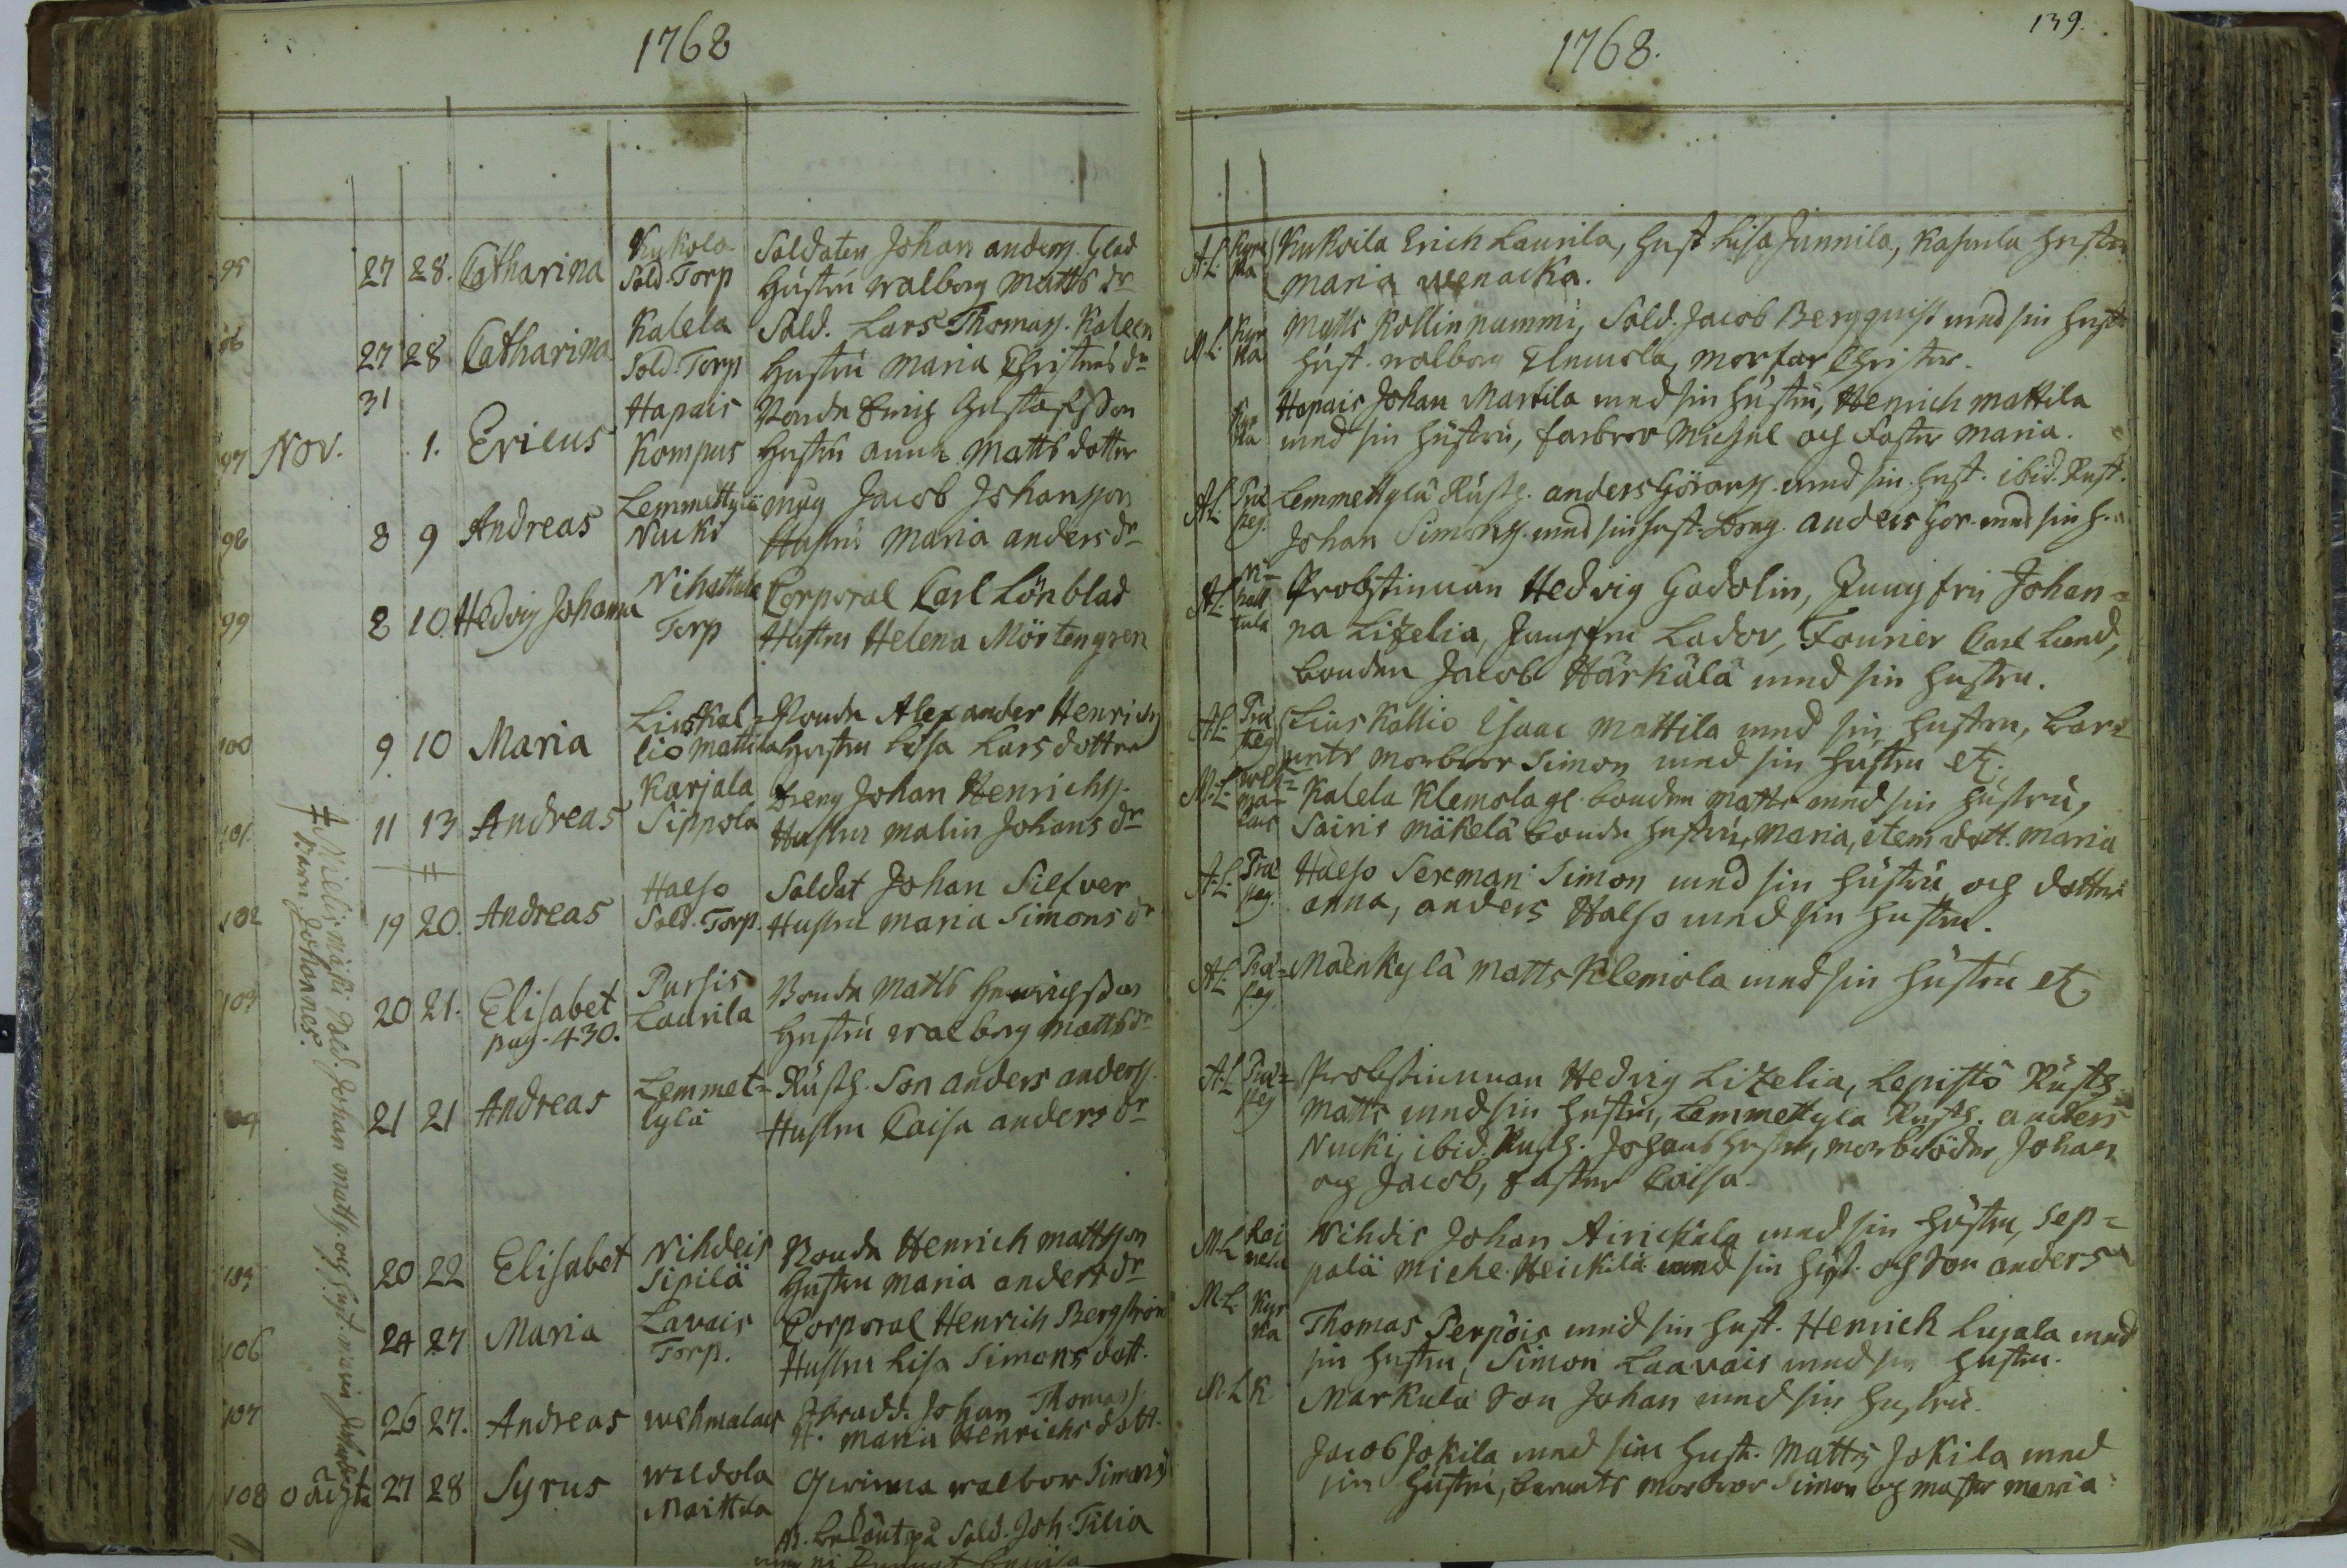 1768
95 27 28. Catharina Kukola Soldaten Johan anderss. Glad
Sold. Torp Hustru Walborg Matts dr
96 27 28 Catharina Kalela Sold. Lars Thomass. Kaleen
Sold. Torp Hustru Maria Christers dr
31 Hapais Bonde Erich Gustafsson
97 Nov. 1. Ericus Kompus Hustru anna Matts dotter
Lemmettylä Jacob Johansson
98 8 9 Andreas Nucki Hustru Maria anders dr
Nihattula Corporal Carl Lönblad
99 8 10. Hedvig Johanna Torp Hustru Helena Mörtengren
Liuskal= Bonde Alexander Henrichs
100 9 10 Maria lio Mattila Hustru Lisa Larsdotter
Karjala Dreng Johan Henrichss.
101 11 13 Andreas Sippola Hustru Malin Johans dr
Halso Soldat Johan Silfver
102 19 20. Andreas Sold. Torp. Hustru Maria Simons dr
103 20 21. Elisabet Pursis Bonde Matts Henrichsson
pag. 430. Laurila Hustru Walborg Matts dr
Lemmet= Rusth. Son anders anderss.
104 21 21 Andreas tylä Hustru Caisa anders dr
105 20 22 Elisabet Nihdeis Bonde Henrich Mattsson
Sipilä Hustru Maria anders dr
106 24 27 Maria Lavais Corporal Henrich Bergström
Torp. Hustru Lisa Simons dott.
107 26 27. Andreas Wehmalais Johan Thomass.
H. Maria Henrichs dott.
108 oächta 27 28 Syrus Qwinna Walbor Simons
Maittla
NB. Sold. Joh. Tilia
Johan Matss. och Hust.
Barn Johannes.
139.
1768.
A.L. Kyrc Kukoila Erich Laurila, Hust. Lisa Junnila, Hustru
ka Maria
M.L. Kyr Matts Kollinpummi, Sold. Jacob Bergquist med sin Hustr.
ka Hust. Walborg morfar Christer.
Kyr Hapais Johan Martila med sin Hustru, Henrich Mattila
ka med sin Hustru, farbror Michel och Faster Maria.
A.L. Præ Lemmettylä Rusth. anders Görans. med sin Hust. ibid. Rust.
peg. Johan Simons. med sin Hust. Dreng. anders Gör. med sin H.
A.L. Ni= Probstinnan Hedvig Gadolin, Jungfru Johan=
hatt na Lizelia, Jungfru Fourier Carl Lund,
tula bonden Jacob Härkälä med sin Hustru.
A.L. Præ Liuskallio Isaac Mattila med sin Hustru, bar=
peg nets Morbror Simon med sin Hustru etc.
M.L. Weh= Kalela Klemola gl. bonden Matts med sin Hustru,
ma= lais Sairis Mäkelä bonde Hustru, Maria, item dott. Maria
A.L. Præ Halso Sexman Simon med sin Hustru och dotter
peg. anna, anders Halso med sin Hustru.
A.L. Præ= Mäenkylä Matts Klemola med sin Hustru etc.
peg.
A.L. Præ= Probstinnan Hedvig Lizelia, Lepistö Rusth.
peg Matts med sin Hustru, Lemmettyla Rusth. anders
Nucki, ibid. Rusth. Johans Hustru, morbröder Johan
och Jacob, faster Caisa.
M.L. Kai Nihdis Johan Airickala med sin Hustru, Sep=
nela palä Miche Heickilä med sin Hust. och Son anders
M.L. Kyr Thomas Perpöis med sin Hust. Henrich Lujala med
ka sin Hustru, Simon Laavais med sin Hustru.
M.L. K Markula Son Johan med sin Hustru.
Jacob Jokila med sin Hust. Matts Jokila med
sin Hustru, barnets Morbror Simon och Moster Maria